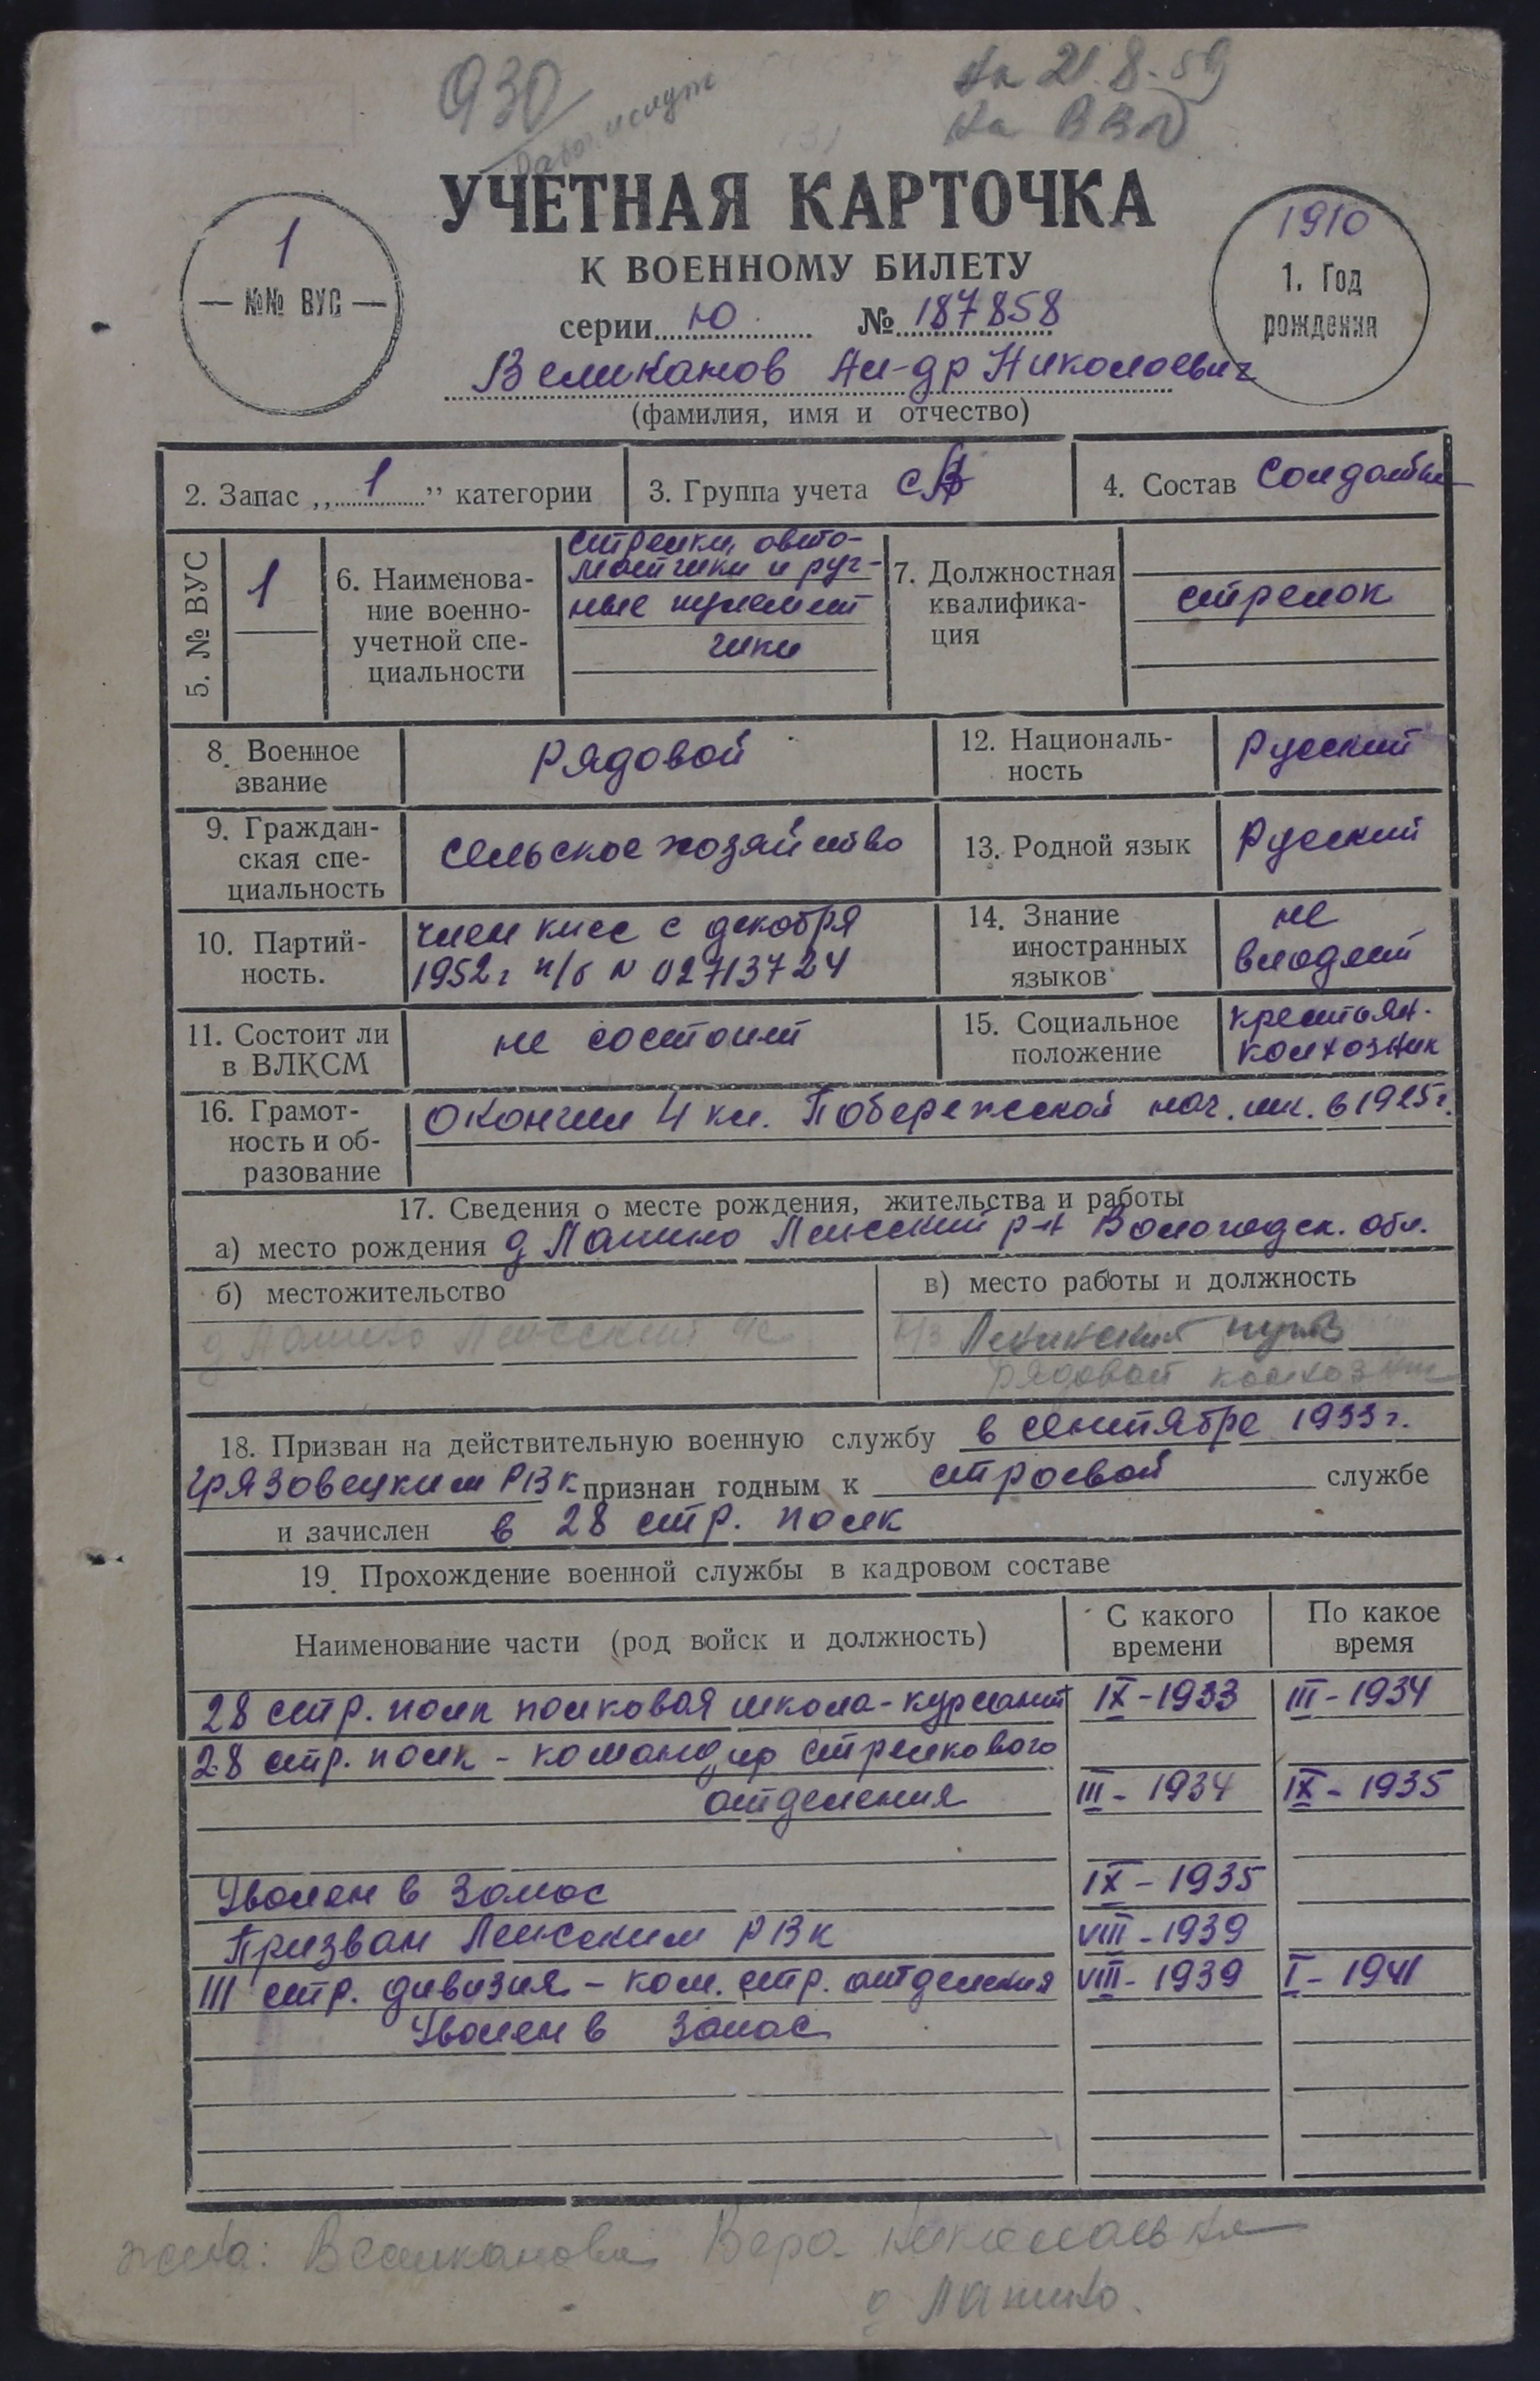 930
на 21.8.59
на ВВО
УЧЕТНАЯ КАРТОЧКА
К ВОЕННОМУ БИЛЕТУ
1
— №№ ВУС —
1910
1. Год
рождения
серии Ю № 187858
Великанов Ал-др Николаевич
(фамилия, имя и отчество)
2. Запас „1” категории
3. Группа учета СА
4. Состав Солдаты
5. № ВУС
1
6. Наименова-
ние военно-
учетной спе-
циальности
стрелки, авто-
матчики и руч-
ные пулемет
чики
7. Должностная
квалифика-
ция
стрелок
8. Военное
звание
рядовой
12. Националь-
ность
Русский
9. Граждан-
ская спе-
циальность
сельское хозяйство
13. Родной язык
Русский
10. Партий-
ность.
член кпсс с декабря
1952г п/б N 02713724
14. Знание
иностранных
языков
не
владеет
11. Состоит ли
в ВЛКСМ
не состоит
15. Социальное
положение
крестьян.
колхозник
16. Грамот-
ность и об-
разование
Окончил 4 кл. Побережской нач. шк. в 1925г.
17. Сведения о месте рождения, жительства и работы
а) место рождения д Лапино Лежский р-н Вологодск. обл.
б) местожительство
д Лапино Лежский
в) место работы и должность
к/з Ленинский путь
рядовой колхозник
18. Призван на действительную военную службу в сентябре 1933г.
Грязовецким РВК признан годным к строевой службе
и зачислен в 28 стр. полк
19. Прохождение военной службы в кадровом составе
Наименование части (род войск и должность)
С какого
времени
По какое
время
28 стр. полк полковая школа - курсант IX - 1933 III - 1934
28 стр. полк - командир стрелкового
отделения III - 1934 IX - 1935
Уволен в запас IX - 1935
Призван Лежским РВК VIII - 1939
111 стр. дивизия - ком. стр. отделения VIII - 1939 I - 1941
Уволен в запас
жена: Великанова Вера Николаевна
д Лапино.